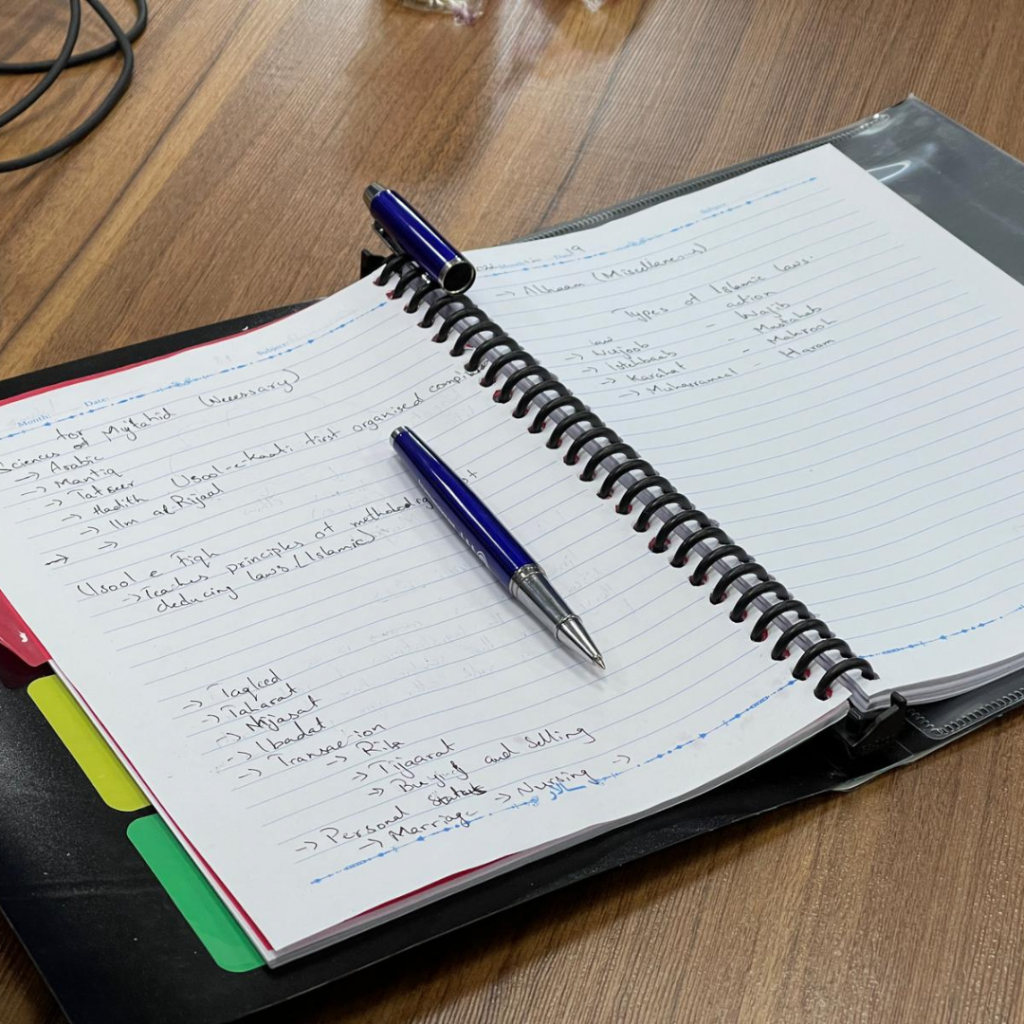 Month: Date:
Sciences of for Mujtahid (Necessary)
-> Arabic
-> Mantiq
-> Tafseer
-> Hadith Usool-e-Kaafi: first organised
-> Ilm al-Rijaal
->
->
Usool e Fiqh
-> Teaches principles of methodology
deducing laws (Islamic)
-> Taqleed
-> Taharat
-> Nijasat
-> Ibadat
-> Transaction
-> Riba
-> Tijaarat
-> Buying and Selling
-> Personal Status
-> Marriage -> Nursing ->
-> Ahkaam (Miscellaneous)
Types of Islamic Laws:
law action
-> Wujoob - Wajib
-> Istehbaab - Mustahab
-> Karahat - Makrooh
-> Muharramat - Haram